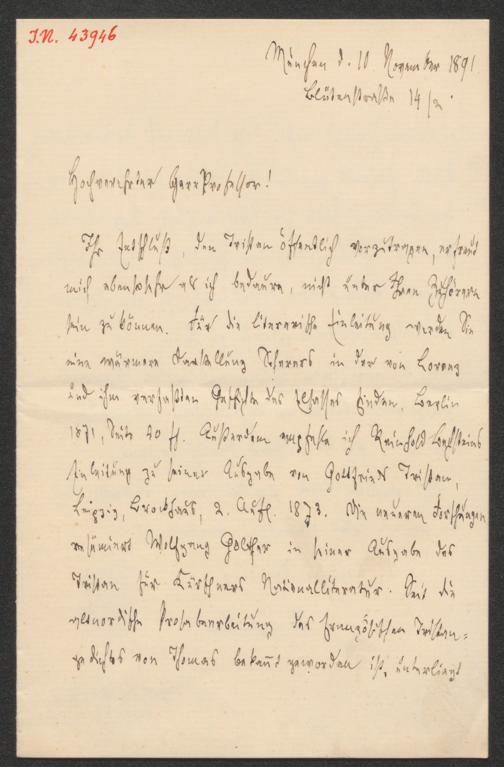 I.N. 43946
München d. 10 November 1891
Blütenstraße 14/2.
Hochverehrter Herr Professor!
Ihr Entschluß, den Tristan öffentlich vorzutragen, erfreut
mich ebensosehr als ich bedaure, nicht unter Ihren Zuhörern
sein zu können. Für die literarische Einleitung werden Sie
eine wärmere Darstellung Scherers in der von Lorenz
und ihm verfaßten Geschichte des Elsasses finden, Berlin
1871, Seite 40 ff. Außerdem empfehle ich Reinhold Bechsteins
Einleitung zu seiner Ausgabe von Gottfrieds Tristan,
Leipzig, Brockhaus, 2. Aufl. 1873. Die neueren Forschungen
resümiert Wolfgang Golther in seiner Ausgabe des
Tristan für Kürschners Nationalliteratur. Seit die
altnordische Prosabearbeitung des französischen Tristan-
gedichtes von Thomas bekannt geworden ist, unterliegt